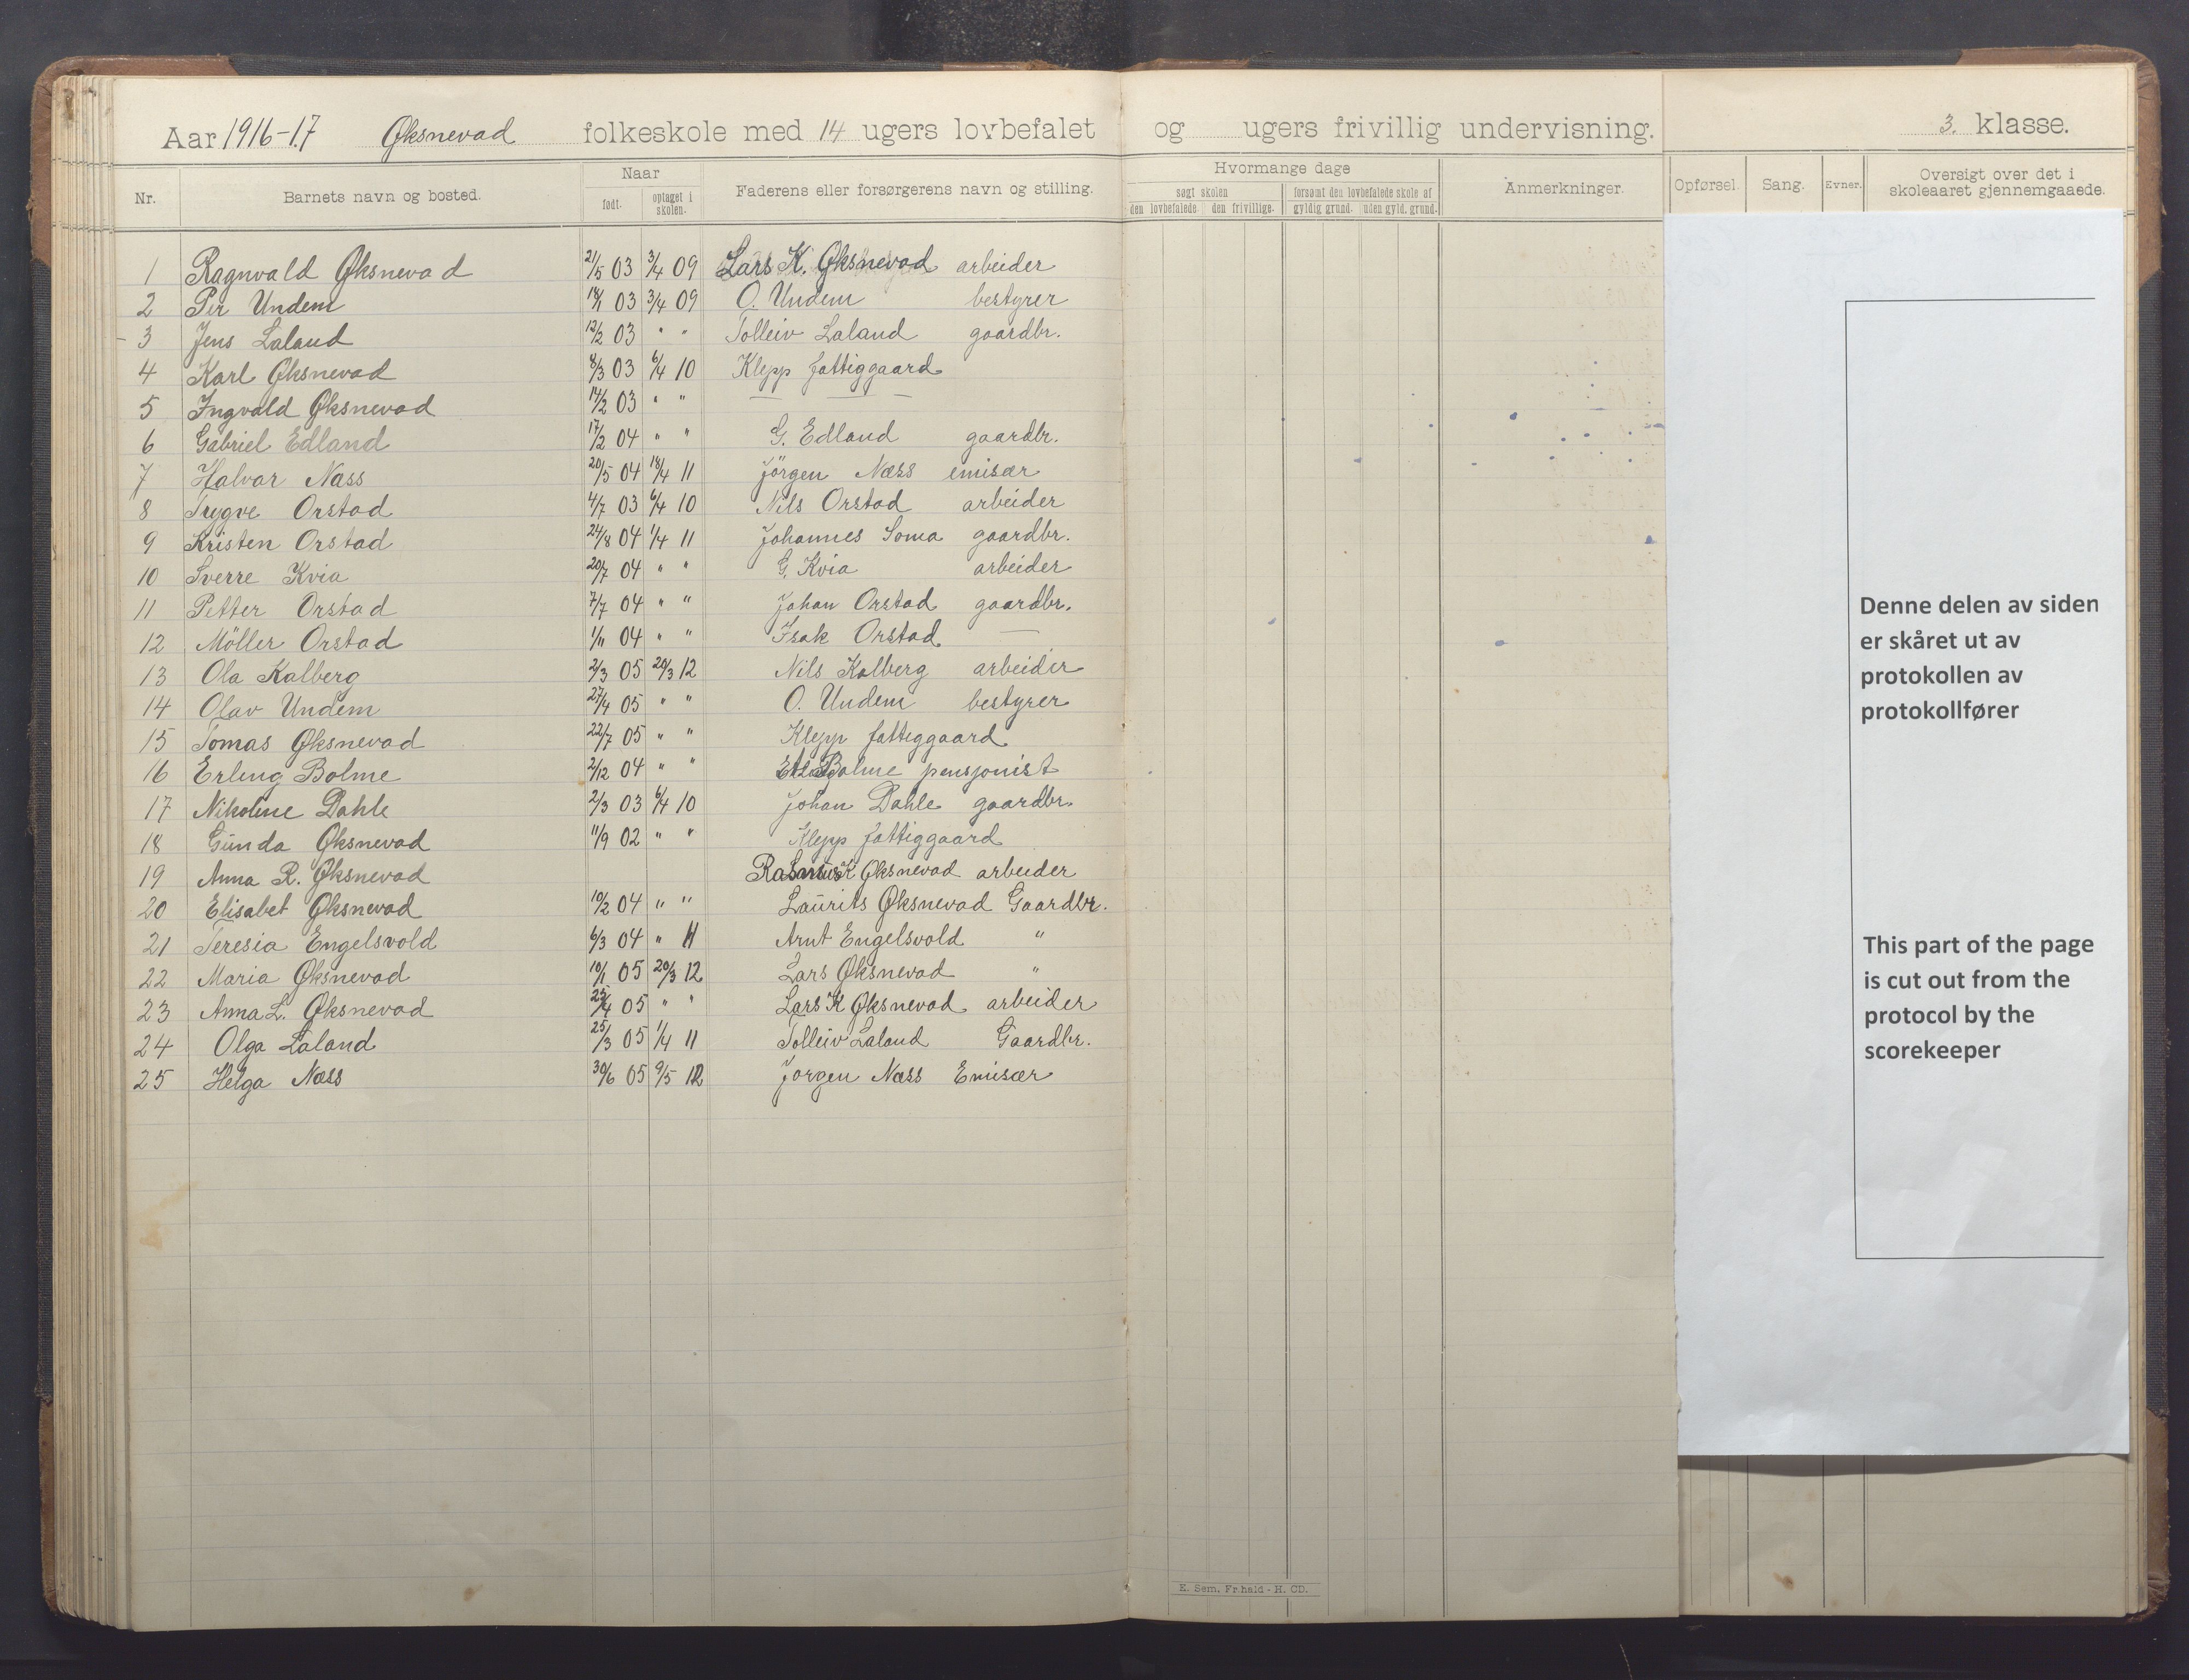 Aar 1916-17 Øksnevad folkeskole med 14 ugers lovbefalet og ugers frivillig undervisning. 3. klasse.
Nr. Barnets navn og bosted. Naar født. optaget i skolen. Faderens eller forsørgerens navn og stilling. Hvormange dage søgt skolen den lovbefalede. den frivillige. forsømt den lovbefalede skole af gyldig grund. uden gyld. grund. Anmerkninger. Opførsel. Sang. Evner. Oversigt over det i skoleaaret gjennemgaaede.
1 Ragnvald Øksnevad 21/5 03 3/4 09 Lars K. Øksnevad arbeider
2 Per Undem 03 3/4 09 O. Undem bestyrer
3 Jens Laland 12/2 03 " " Tolleiv Laland gaardbr.
4 Karl Øksnevad 8/3 03 6/4 10 Klepp fattiggaard
5 Ingvald Øksnevad 14/2 03 " " — — —
6 Gabriel Edland 17/2 04 " " G. Edland gaardbr.
7 Halvar Næss 20/5 04 18/4 11 Jörgen Næss emisær
8 Trygve Orstad 4/7 03 6/4 10 Nils Orstad arbeider
9 Kristen Orstad 24/8 04 1/4 11 Johannes Soma gaardbr.
10 Sverre Kvia 20/7 04 " " G. Kvia arbeider
11 Petter Orstad 7/7 04 " " Johan Orstad gaardbr.
12 Möller Orstad 1/11 04 " " Isak Orstad —
13 Ola Kalberg 2/3 05 20/3 12 Nils Kalberg arbeider
14 Olav Undem 27/4 05 " " O. Undem bestyrer
15 Tomas Øksnevad 22/7 05 " " Klepp fattiggaard
16 Erling Bolme 2/12 04 " " Bolme pensjonist
17 Nikoline Dahle 2/3 03 6/4 10 Johan Dahle gaardbr.
18 Gunda Øksnevad 11/9 02 " " Klepp fattiggaard
19 Anna R. Øksnevad Rasmus K Øksnevad arbeider
20 Elisabet Øksnevad 10/2 04 " " Laurits Øksnevad Gaardbr.
21 Teresia Engelsvold 6/3 04 " 11 Arnt Engelsvold "
22 Maria Øksnevad 10/1 05 20/3 12 Lars Øksnevad "
23 Anna L. Øksnevad 05 " " Lars K Øksnevad arbeider
24 Olga Laland 25/3 05 1/4 11 Tolleiv Laland Gaardbr.
25 Helga Næss 30/6 05 9/5 12 Jorgen Næss Emisær
Denne delen av siden
er skåret ut av
protokollen av
protokollfører
This part of the page
is cut out from the
protocol by the
scorekeeper
E. Sem, Fr.hald - H. CD.